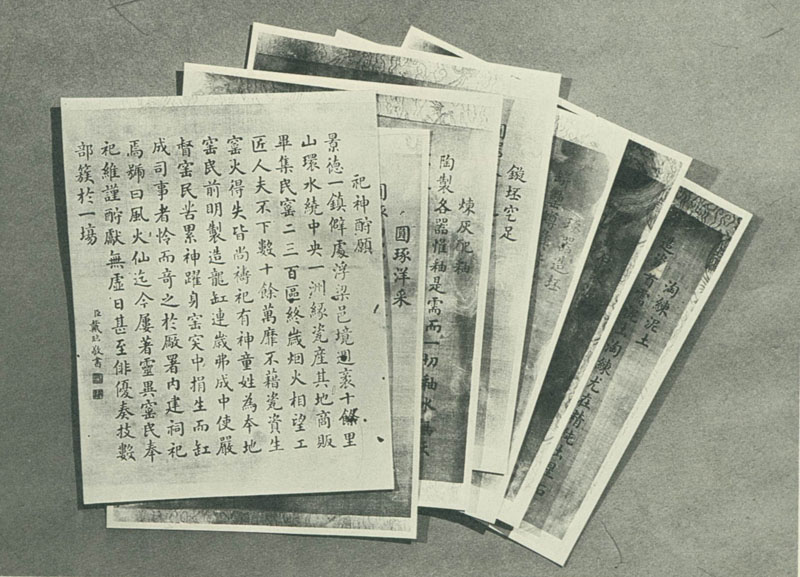 祀神酧願
景德一鎮僻處浮梁邑境週袤十餘里
山環水繞中央一洲緣瓷產其地商販
畢集民窰二三百區終歲烟火相望工
匠人夫不下數十餘萬靡不藉瓷資生
窰火得失皆尚禱祀有神童姓為本地
窰民前明製造龍缸連歲弗成中使嚴
督窰民苦累神躍身窰突中捐生而缸
成司事者怜而奇之於廠署內建祠祀
焉號曰風火仙迄今屢著靈異窰民奉
祀維謹酧獻無虛日甚至俳優奏技數
部簇於一場
臣戴臨敬書
圓琢洋采
煉灰配釉
陶製各器惟釉是需而一切釉水
鏇坯足
琢器造坯
淘練泥土
泥土淘練尤在精純土星石